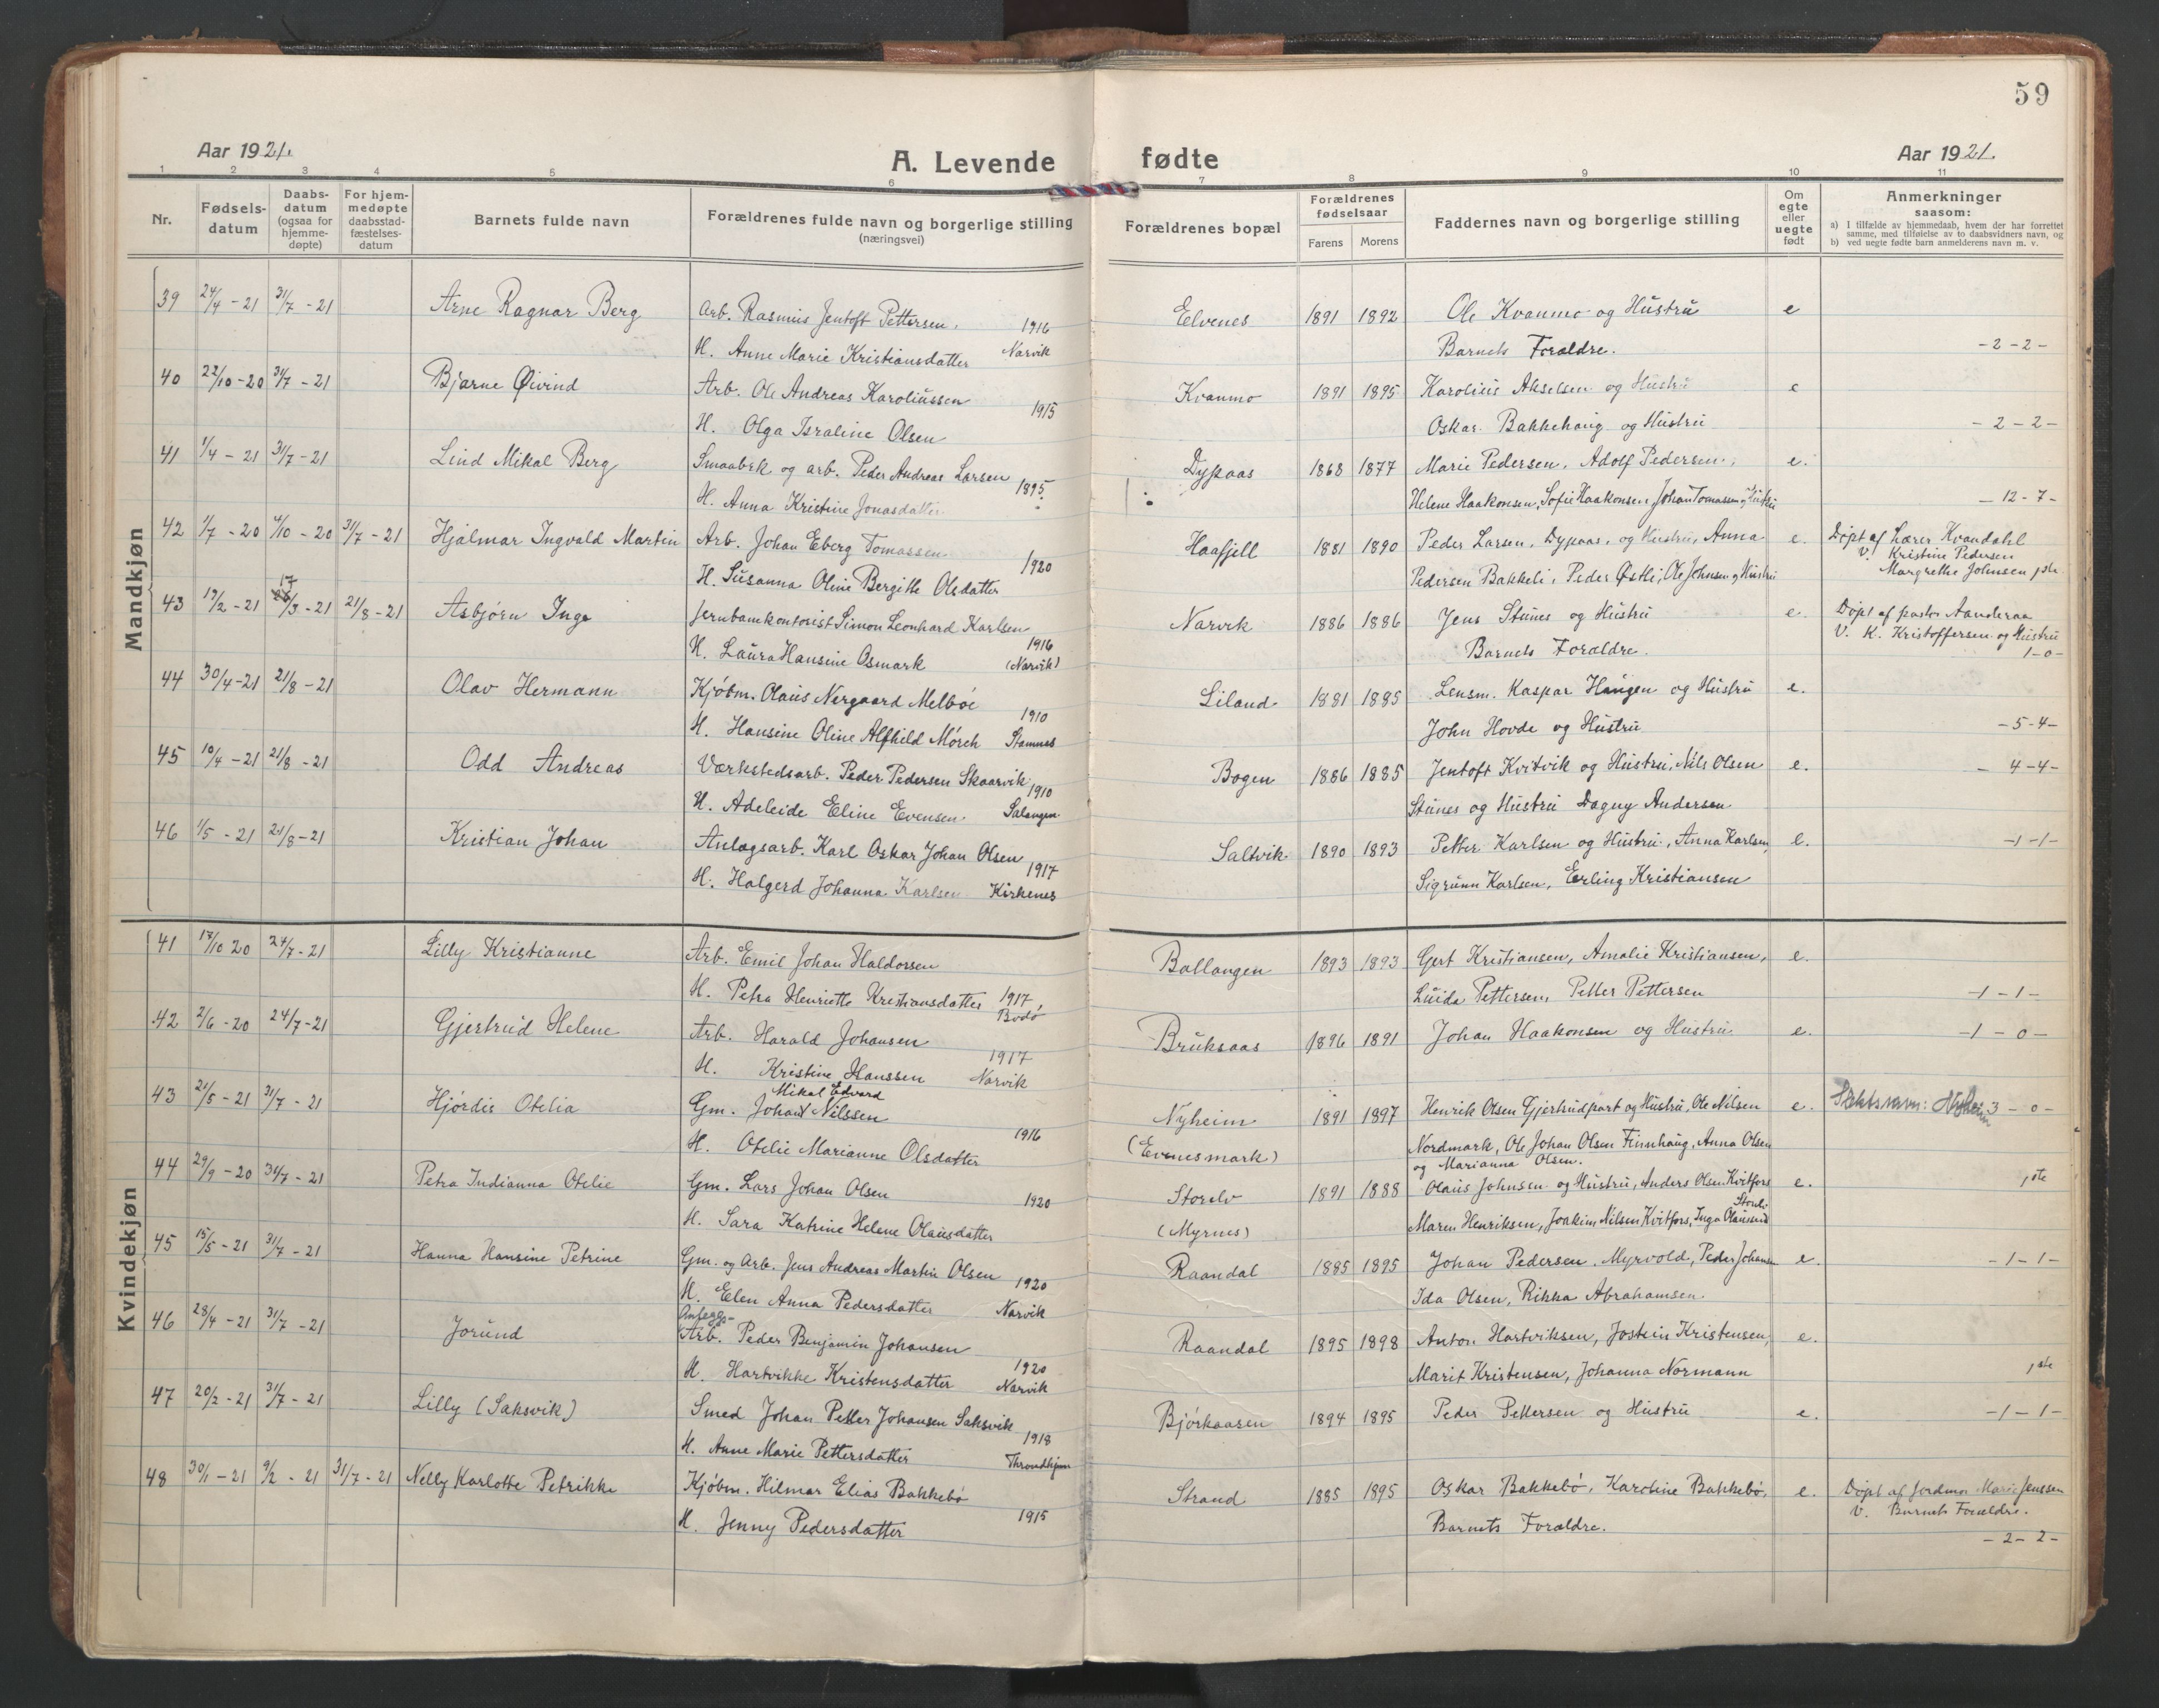 59
Aar 1921.
A. Levende fødte
Aar 1921.
1 2 3 4 5 6 7 8 9 10 11
Nr.
Fødsels-
datum
Daabs-
datum
(ogsaa for
hjemme-
døpte)
For hjem-
medøpte
daabsstad-
fæstelses-
datum
Barnets fulde navn
Forældrenes fulde navn og borgerlige stilling
(næringsvei)
Forældrenes bopæl
Forældrenes
fødselsaar
Farens Morens
Faddernes navn og borgerlige stilling
Om
egte
eller
uegte
født
Anmerkninger
saasom:
a) I tilfælde av hjemmedaab, hvem der har forrettet
samme, med tilføielse av to daabsvidners navn, og
b) ved uegte fødte barn anmelderens navn m. v.
Mandkjøn
39 24/4 - 21 31/7 - 21 Arne Ragnar Berg Arb. Rasmus Jentoft Pettersen. 1916 Elvenes 1891 1892 Ole Kvanmo og Hustru e
H. Anne Marie Kristiansdatter Narvik Barnets Forældre. -2-2-
40 22/10 - 20 31/7 - 21 Bjarne Øivind Arb. Ole Andreas Karoliussen 1915 Kvanmo 1891 1895 Karolius Akselsen og Hustru e
H. Olga Israline Olsen Oskar Bakkehaug og Hustru -2-2-
41 1/4 - 21 31/7 - 21 Lind Mikal Berg Smaabrk og arb. Peder Andreas Larsen 1895 Dypaas 1868 1877 Marie Pedersen, Adolf Pedersen, e.
H. Anna Kristine Jonasdatter Helene Haakonsen, Sofie Haakonsen, Johan Tomassen og Hustru -12-7-
42 1/7 - 20 4/10 - 20 31/7 - 21 Hjalmar Ingvald Martin Arb. Johan Eberg Tomassen 1920 Haafjell 1881 1890 Peder Larsen, Dypaas, og Hustru, Anna e. Døpt af Lærer Kvandahl
V. Kristine Pedersen
H. Susanna Oline Bergitte Olsdatter Pedersen Bakkeli, Peder Østli, Ole Johnsen og Hustru Margrethe Johnsen 1ste
43 19/2 - 21 17/3 - 21 21/8 - 21 Asbjørn Inge Jernbanekontorist Simon Leonhard Karlsen 1916 Narvik 1886 1886 Jens Stunes og Hustru e. Døpt af pastor Aanderaa
V. K. Kristoffersen og Hustru
H. Laura Hansine Osmark (Narvik) Barnets Forældre. 1-0-
44 30/4 - 21 21/8 - 21 Olav Hermann Kjøbm. Olaus Nergaard Melbøe 1910 Liland 1881 1885 Lensm. Kaspar Haugen og Hustru e.
H. Hansine Oline Alfhild Mørch Stamnes John Hovde og Hustru -5-4-
45 10/4 - 21 21/8 - 21 Odd Andreas Værkstedsarb. Peder Pedersen Skaarvik 1910 Bogen 1886 1885 Jentoft Kvitvik og Hustru, Nils Olsen e. -4-4-
H. Adeleide Eline Evensen. Salangen Stunes og Hustru Dagny Andersen
46 1/5 - 21 21/8 - 21 Kristian Johan Anlægsarb. Karl Oskar Johan Olsen 1917 Saltvik 1890 1893 Petter Karlsen og Hustru, Anna Karlsen, e. -1-1-
H. Halgerd Johanna Karlsen Kirkenes Sigrunn Karlsen, Erling Kristiansen
Kvindekjøn
41 17/10 20 24/7 - 21 Lilly Kristianne Arb. Emil Johan Haldorsen Ballangen 1893 1893 Gert Kristiansen, Amalie Kristiansen, e.
H. Petra Henriette Kristiansdatter 1917, Bodø Luida Pettersen, Petter Pettersen -1-1-
42 2/6 - 20 24/7 - 21 Gjertrud Helene Arb. Harald Johansen 1917 Bruksaas 1896 1891 Johan Haakonsen og Hustru e. -1-0-
H. Kristine Hanssen Narvik
Mikal Edvard
43 21/5 - 21 31/7 - 21 Hjørdis Otelia Gm. Johan Nilssen 1916 Nyheim 1891 1897 Henrik Olsen Gjertrudpart og Hustru, Ole Nilsen e. Slektsnavn: Nyheim 3-0-
H. Otelie Marianne Olsdatter (Evenesmark) Nordmark, Ole Johan Olsen Finnhaug, Anna Olsen
og Marianna Olsen.
44 29/9 - 20 31/7 - 21 Petra Indianna Otelie Gm. Lars Johan Olsen 1920 Storelv 1891 1888 Olaus Johnsen og Hustru, Anders Olsen Kvitfors e. 1ste
H. Sara Katrine Helene Olausdatter (Myrnes) Maren Henriksen, Joakim Nilsen Kvitfors, Inga Olaussen
45 15/5 - 21 31/7 - 21 Hanna Hansine Petrine Gm. og Arb. Jens Andreas Martin Olsen 1920 Raandal 1885 1895 Johan Pedersen. Myrvold, Peder Johansen e. -1-1-
H. Elen Anna Pedersdatter Narvik Ida Olsen, Rikka Abrahamsen
Anlægs-
46 28/4 - 21 31/7 - 21 Jorund Arb. Peder Benjamin Johansen 1920 Raandal 1895 1898 Anton Hartviksen, Jostein Kristensen, e.
H. Hartvikke Kristensdatter Narvik Marit Kristensen, Johanna Normann 1ste
47 20/2 - 21 31/7 - 21 Lilly (Saksvik) Smed Johan Petter Johansen Saksvik 1918 Bjørkaasen 1894 1895 Peder Pettersen og Hustru e. -1-1-
H. Anne Marie Pettersdatter Throndhjem
48 30/1 - 21 9/2 - 21 31/7 - 21 Nelly Karlotte Petrikke Kjøbm. Hilmar Elias Bakkebø 1915 Strand 1885 1895 Oskar Bakkebø, Karoline Bakkebø, e. Døpt af Jordmor Marie Jenssen
V. Barnets Forældre.
H. Jenny Pedersdatter Barnets Forældre. -2-2-